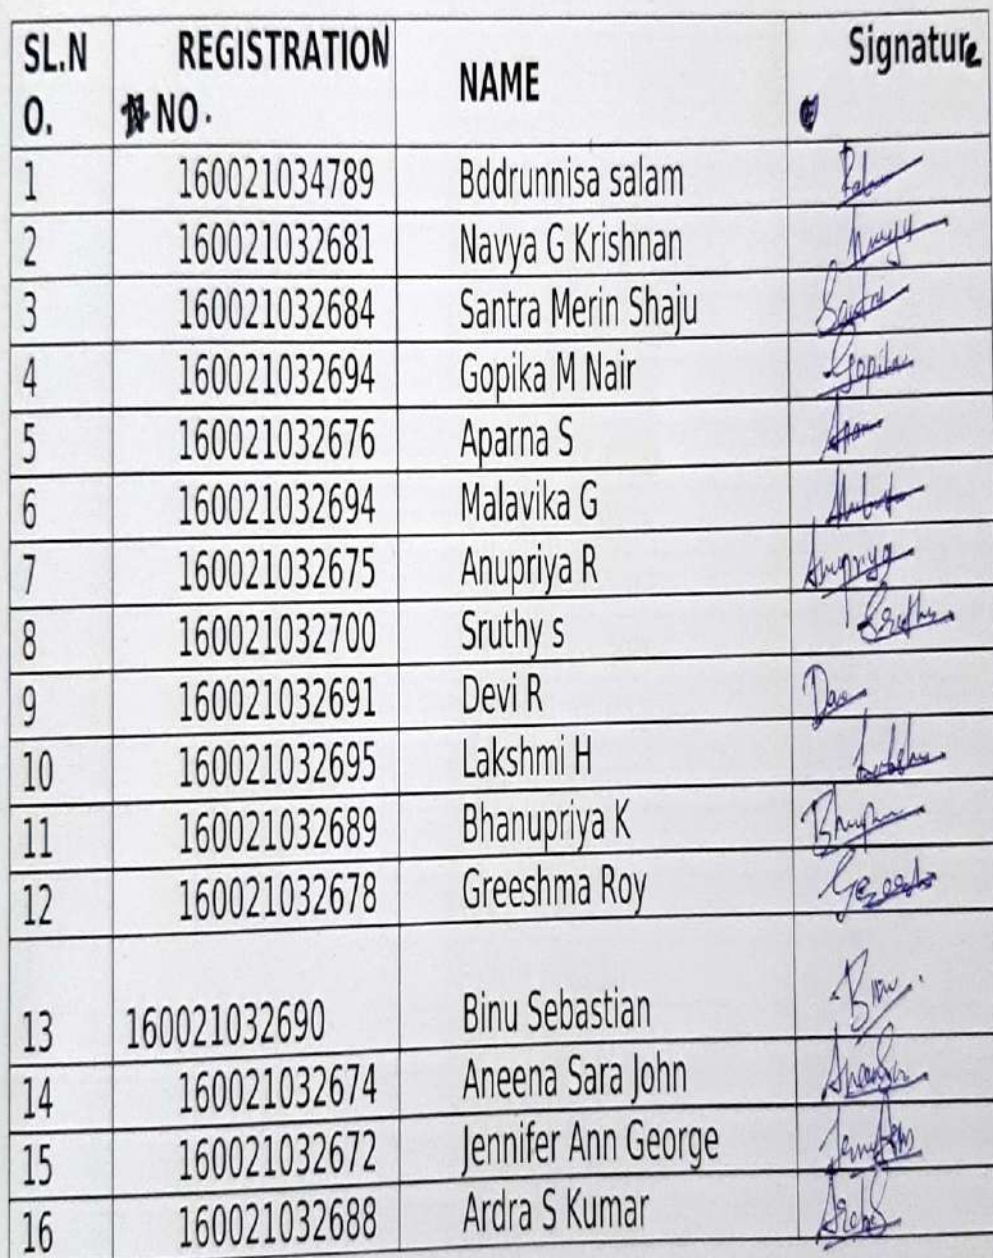 SL.N REGISTRATION NAME Signature
O. NO.
1 160021034789 Bddrunnisa salam
2 160021032681 Navya G Krishnan Navya
3 160021032684 Santra Merin Shaju Santra
4 160021032694 Gopika M Nair Gopika
5 160021032676 Aparna S
6 160021032694 Malavika G
7 160021032675 Anupriya R Anupriya
8 160021032700 Sruthy s Sruthy
9 160021032691 Devi R
10 160021032695 Lakshmi H
11 160021032689 Bhanupriya K
12 160021032678 Greeshma Roy
13 160021032690 Binu Sebastian Binu
14 160021032674 Aneena Sara John
15 160021032672 Jennifer Ann George
16 160021032688 Ardra S Kumar